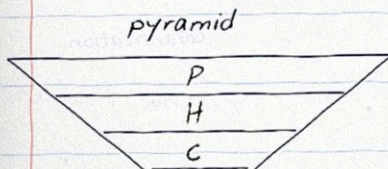 pyramid
P
H
C